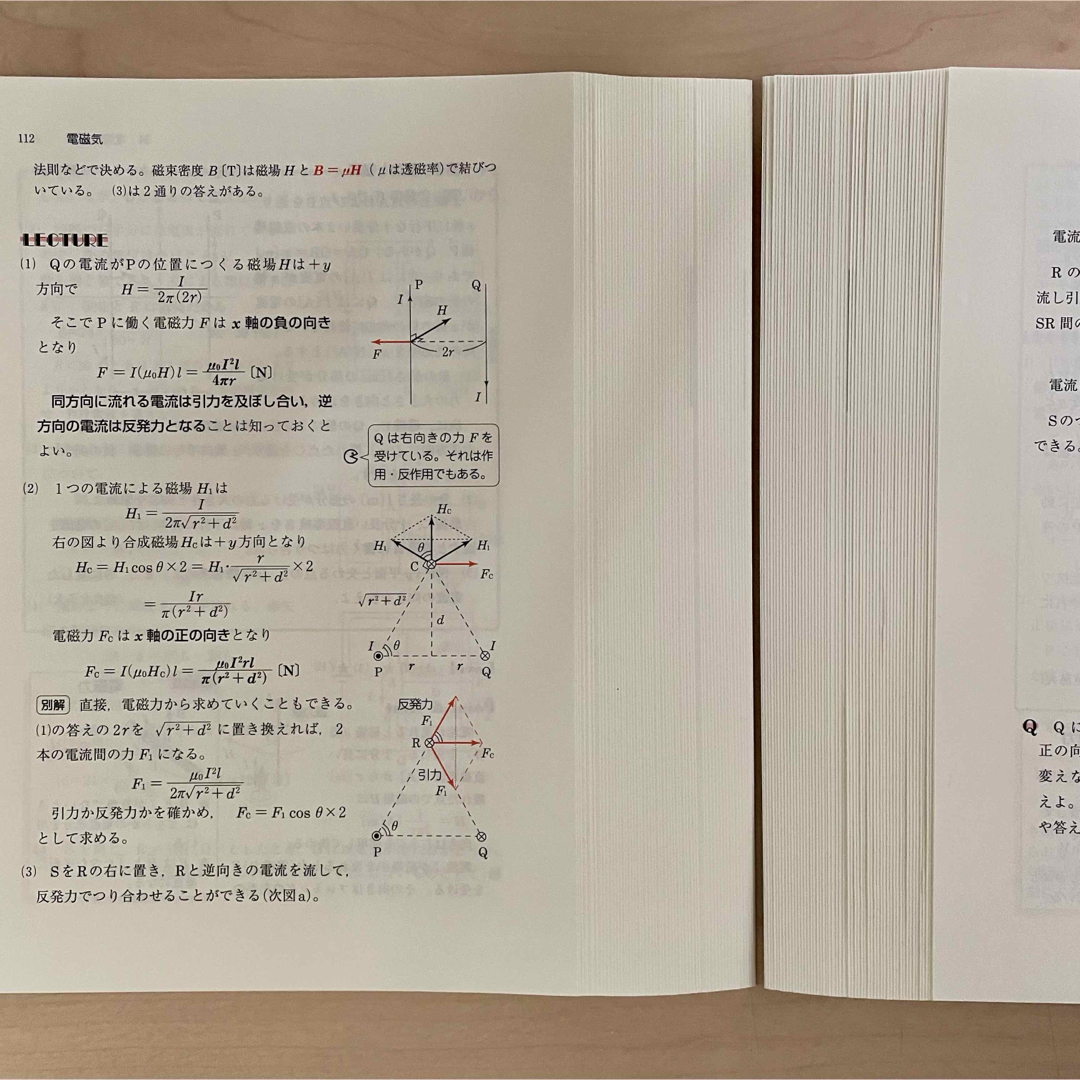 112 電磁気
法則などで決める。磁束密度 B〔T〕は磁場 H と B = μH (μは透磁率)で結びつ
いている。 (3)は2通りの答えがある。
LECTURE
(1) Qの電流がPの位置につくる磁場Hは+y
方向で H = I/2π(2r)
そこで P に働く電磁力 F は x 軸の負の向き
となり
F = I(μ₀H)l = μ₀I²l/4πr 〔N〕
同方向に流れる電流は引力を及ぼし合い，逆
方向の電流は反発力となることは知っておくと
よい。
P
Q
I
H
F
2r
I
Q は右向きの力 F を
受けている。それは作
用・反作用でもある。
(2) 1つの電流による磁場 H₁は
H₁ = I/2π√(r²+d²)
右の図より合成磁場Hcは+y方向となり
Hc = H₁cos θ×2 = H₁・r/√(r²+d²)×2
= Ir/π(r²+d²)
電磁力 Fc は x 軸の正の向きとなり
Fc = I(μ₀Hc)l = μ₀I²rl/π(r²+d²) 〔N〕
Hc
H₁
θ
H₁
C
Fc
√(r²+d²)
d
I
θ
I
r
r
P
Q
別解 直接，電磁力から求めていくこともできる。
(1)の答えの 2r を √(r²+d²) に置き換えれば，2
本の電流間の力 F₁ になる。
F₁ = μ₀I²l/2π√(r²+d²)
引力か反発力かを確かめ， Fc = F₁cos θ×2
として求める。
反発力
F₁
R
Fc
引力
F₁
θ
P
Q
(3) SをRの右に置き，Rと逆向きの電流を流して，
反発力でつり合わせることができる(次図a)。
電流
R の
流し引
SR 間の
電流
Sのつ
できる。
Q Q に
正の向
変えな
えよ。
や答え